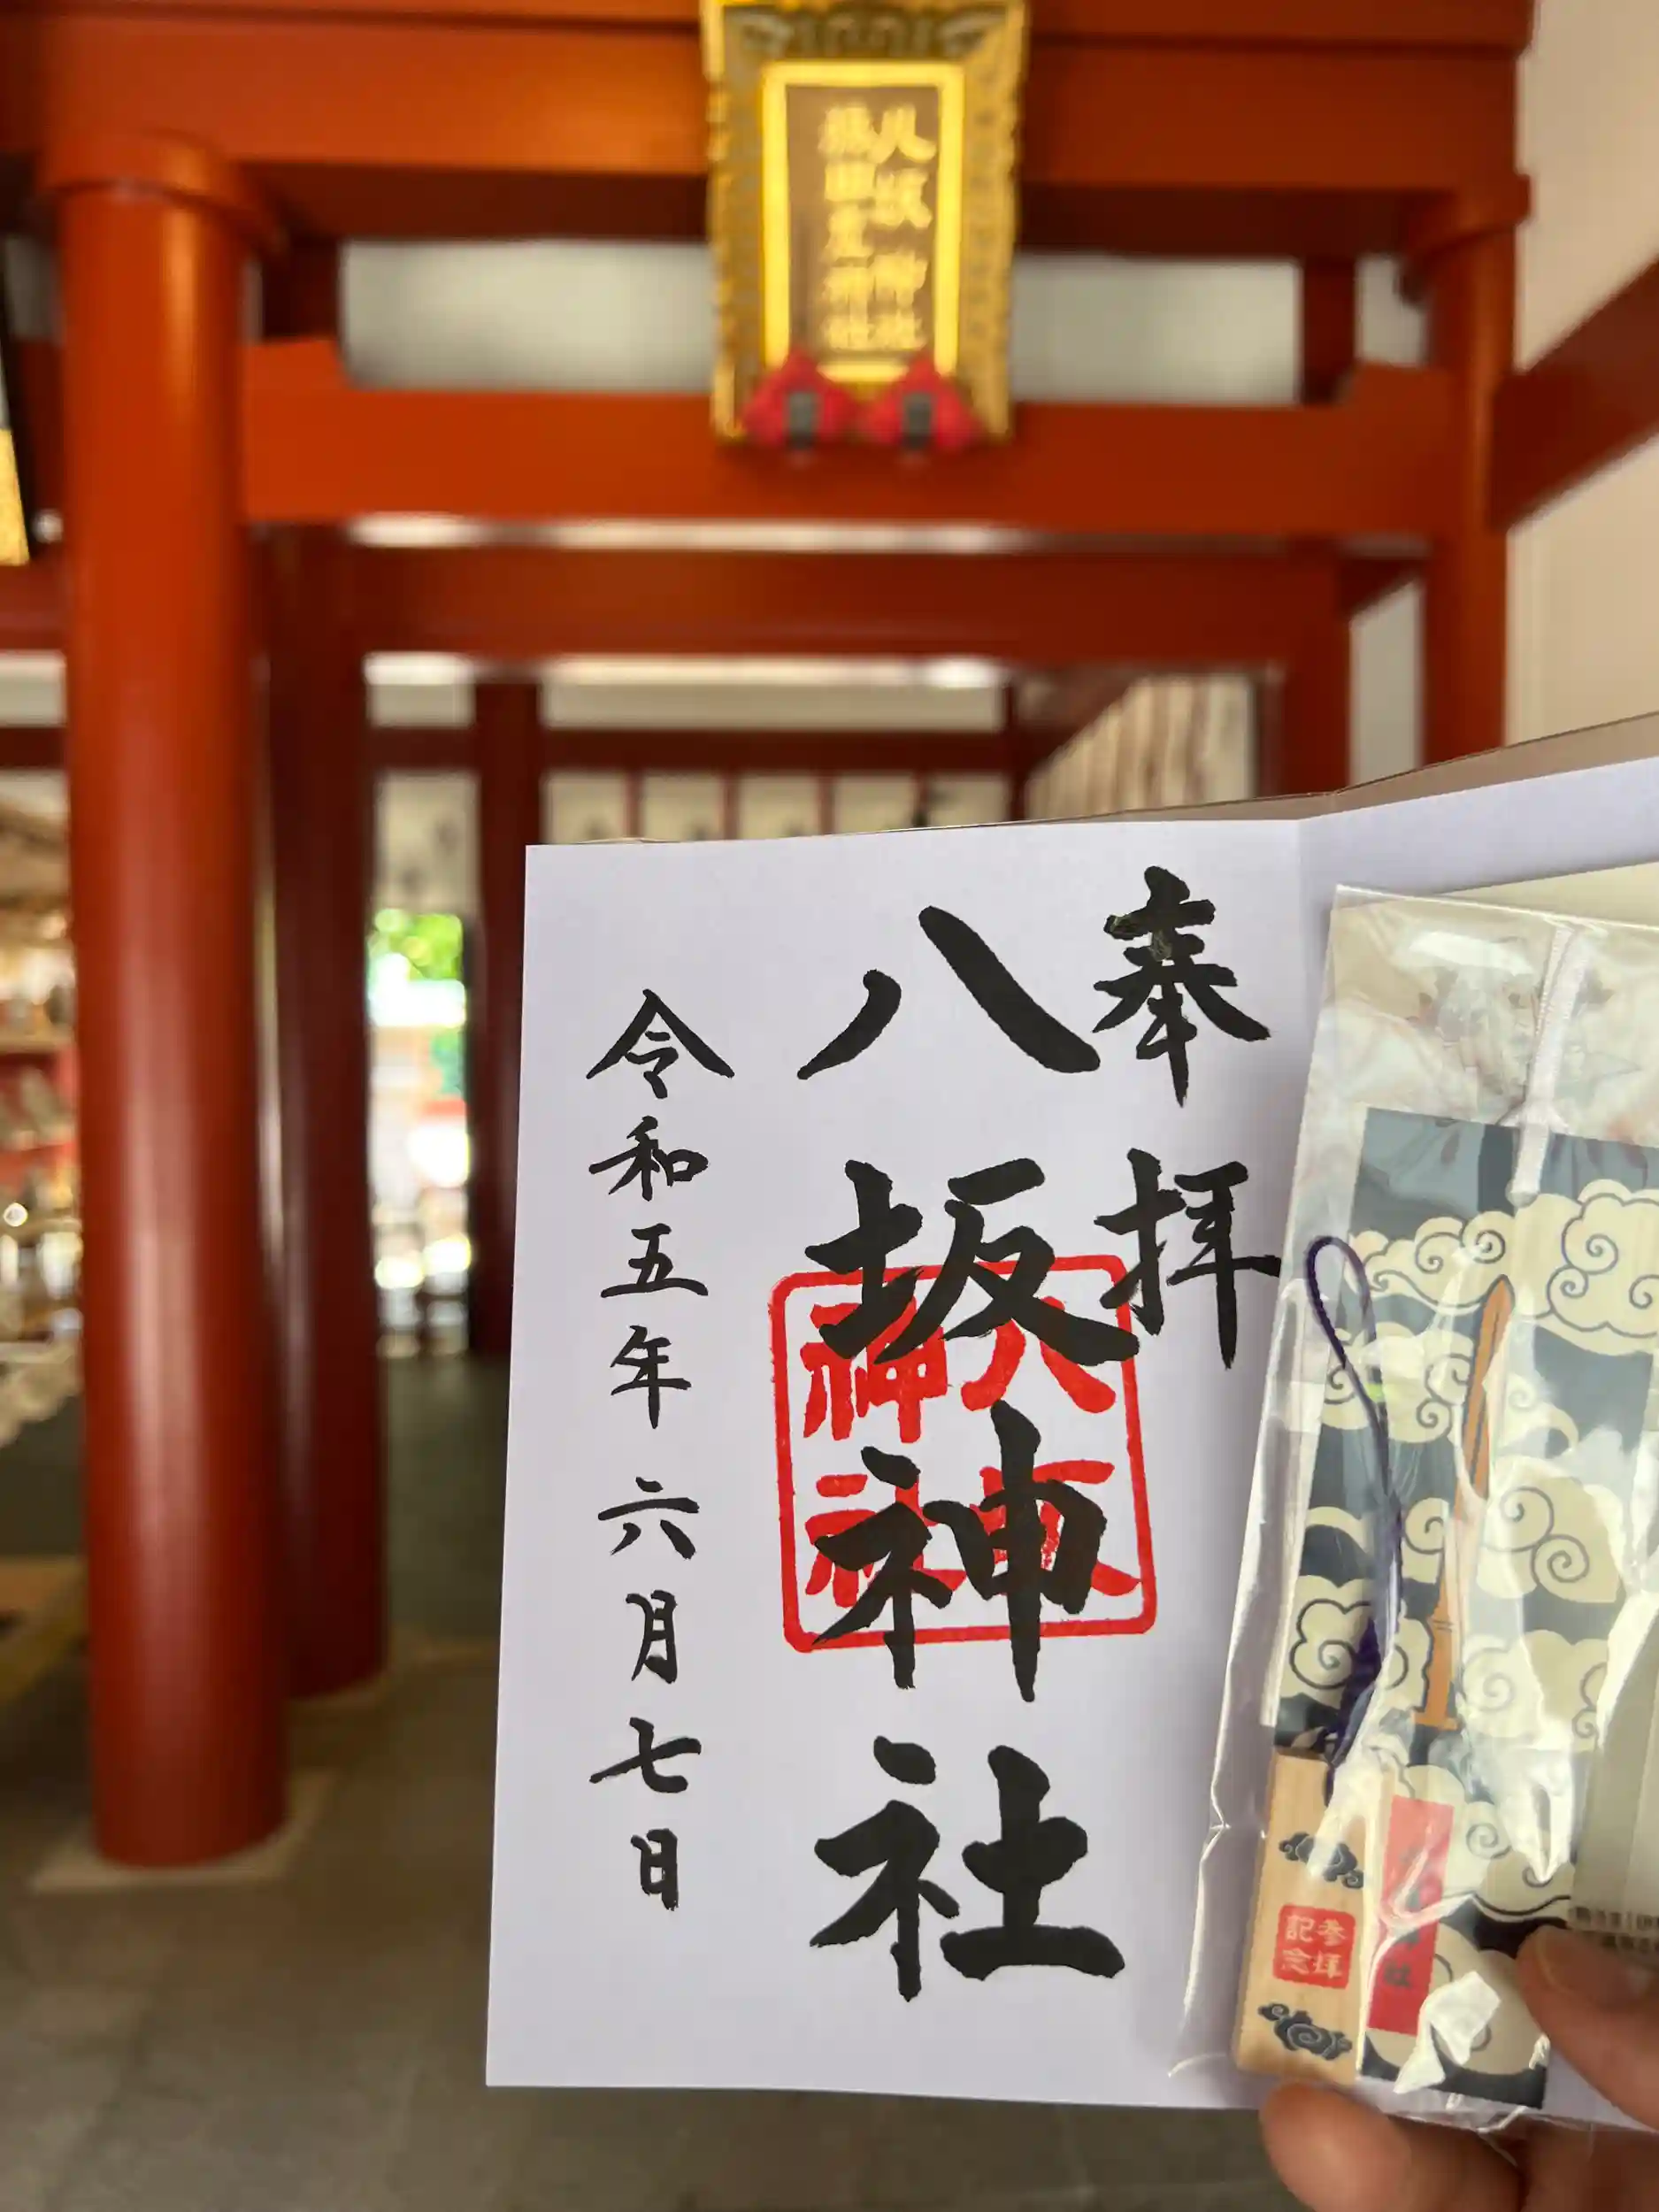 八坂神社
奉拝
八坂神社
令和五年六月七日
八坂
神社
参拝
記念